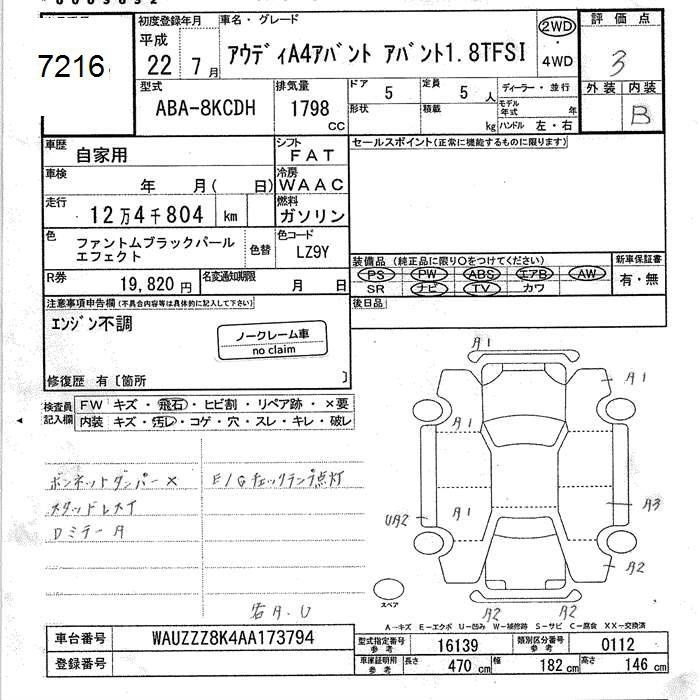 7216
初度登録年月
平成
22 7月
車名・グレード
アウディA4アバント アバント1.8TFSI
2WD
・
4WD
評価点
3
外装 内装
B
型式
ABA-8KCDH
排気量
1798
CC
ドア 5
定員 5 人
形状
積載 kg
ディーラー・並行
モデル年式 年
ハンドル 左・右
車歴
自家用
シフト
FAT
セールスポイント(正常に機能するものに限ります)
車検
年 月( 日)
冷房
WAAC
走行
12万4千804 km
燃料
ガソリン
色
ファントムブラックパール
エフェクト
色替
色コード
LZ9Y
装備品 (純正品に限り○をつけてください)
PS PW ABS エアB AW
SR ナビ TV カワ
新車保証書
有・無
R券
19,820 円
名変通知期限
月 日
後日品
注意事項申告欄(不具合内容等は具体的に記入して下さい)
エンジン不調
ノークレーム車
no claim
修復歴 有〔箇所 〕
検査員
記入欄
FW キズ・飛石・ヒビ割・リペア跡・×要
内装 キズ・汚レ・コゲ・穴・スレ・キレ・破レ
ボンネットダンパー×
スタッドレスタイ
Dミラー A
E/Gチェックランプ点灯
各A.U
A1
A1
A1
A1
UA2
A3
A2
A2
A2
スペア
A→キズ E→エクボ U→凹み W→補修跡 S→サビ C→腐食 XX→交換済
車台番号
WAUZZZ8K4AA173794
登録番号
型式指定番号
参考
16139
類別区分番号
参考
0112
車庫証明用
参考
長さ 470 cm
幅 182 cm
高さ 146 cm